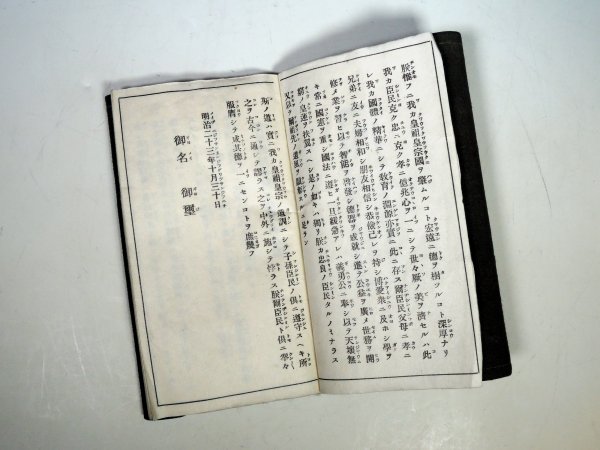 朕惟フニ我カ皇祖皇宗國ヲ肇ムルコト宏遠ニ德ヲ樹ツルコト深厚ナリ
我カ臣民克ク忠ニ克ク孝ニ億兆心ヲ一ニシテ世々厥ノ美ヲ濟セルハ此
レ我カ國體ノ精華ニシテ敎育ノ淵源亦實ニ此ニ存ス爾臣民父母ニ孝ニ
兄弟ニ友ニ夫婦相和シ朋友相信シ恭儉己レヲ持シ博愛衆ニ及ホシ學ヲ
修メ業ヲ習ヒ以テ智能ヲ啓發シ德器ヲ成就シ進テ公益ヲ廣メ世務ヲ開
キ常ニ國憲ヲ重シ國法ニ遵ヒ一旦緩急アレハ義勇公ニ奉シ以テ天壤無
窮ノ皇運ヲ扶翼スヘシ是ノ如キハ獨リ朕カ忠良ノ臣民タルノミナラス
又以テ爾祖先ノ遺風ヲ顯彰スルニ足ラン
斯ノ道ハ實ニ我カ皇祖皇宗ノ遺訓ニシテ子孫臣民ノ俱ニ遵守スヘキ所
之ヲ古今ニ通シテ謬ラス之ヲ中外ニ施シテ悖ラス朕爾臣民ト俱ニ拳々
服膺シテ咸其德ヲ一ニセンコトヲ庶幾フ
明治二十三年十月三十日
御名 御璽